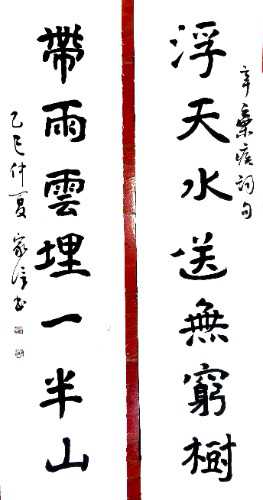 辛棄疾詞句
浮天水送無窮樹
帶雨雲埋一半山
乙巳仲夏 家信書